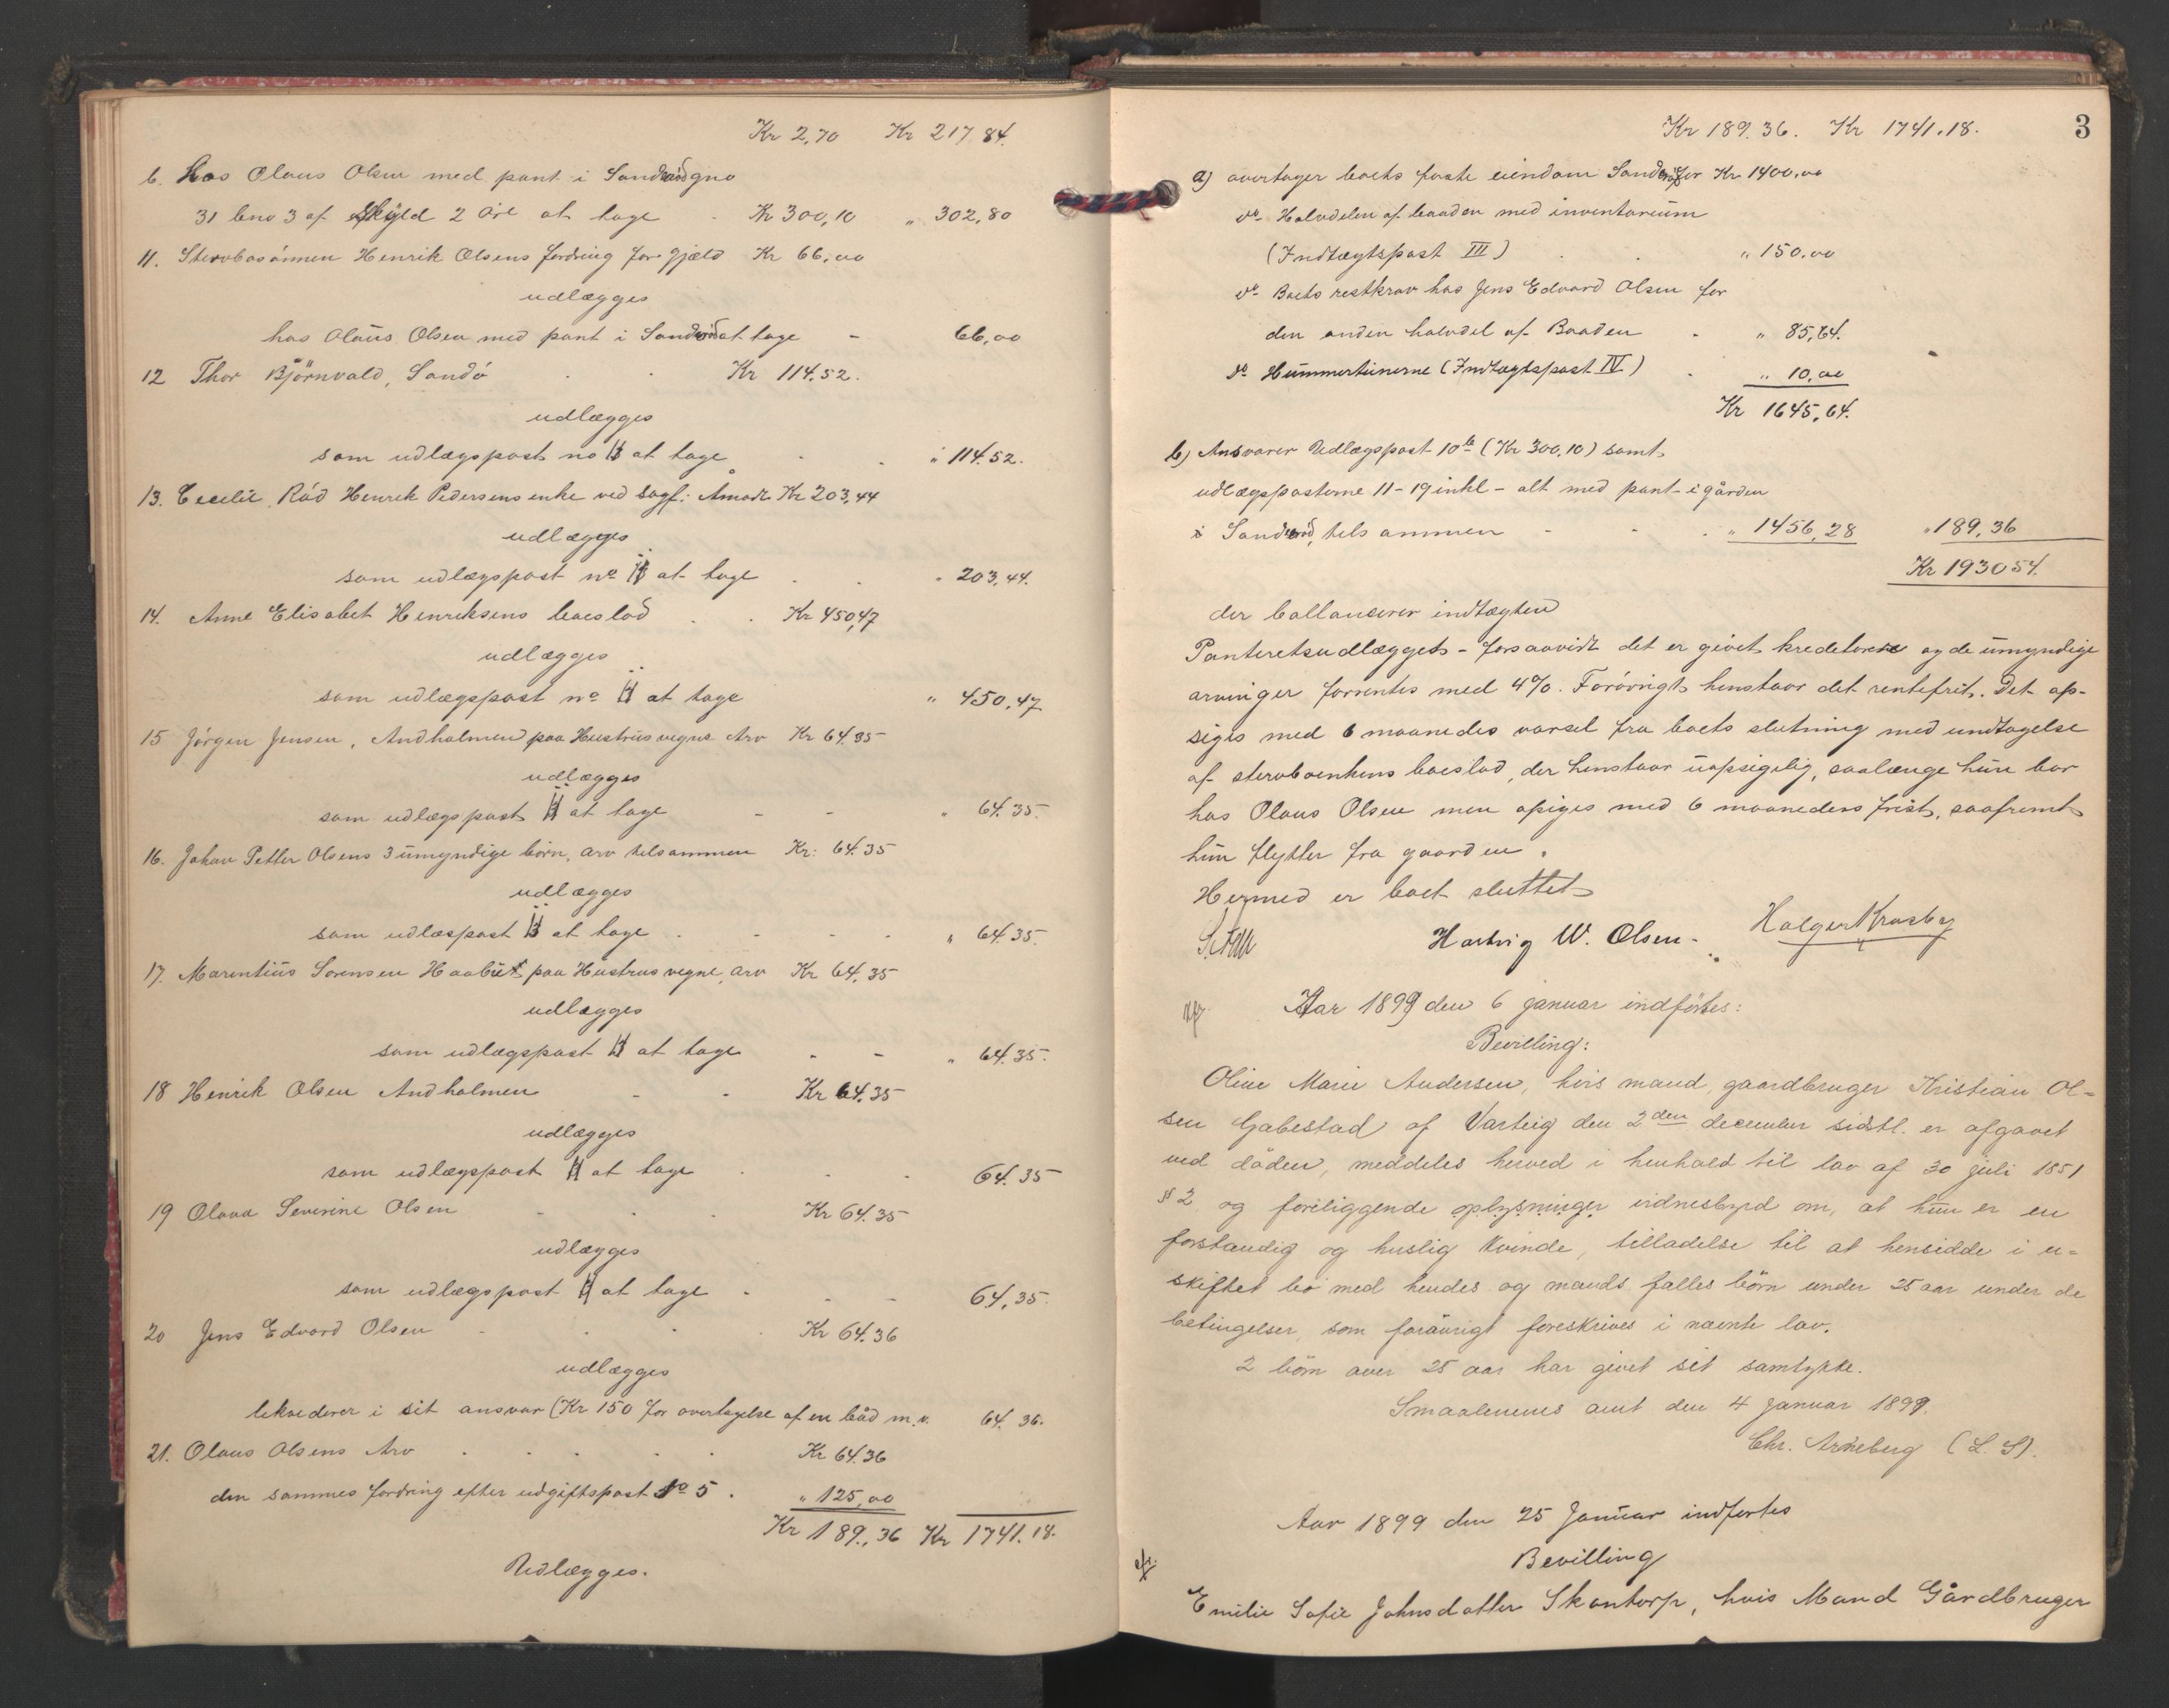 Kr 2,70 Kr 217.84.
b. Hos Olaus Olsen med pant i Sandrød gno
31 bno 3 af Skyld 2 öre at tage Kr 300,10 " 302,80
11. Stervbosönnen Henrik Olsens fordring for gjæld Kr 66,00
udlægges
hos Olaus Olsen med pant i Sandrød at tage - 66,00
12 Thor Björnvald, Sandö Kr 114.52.
udlægges
som udlægspost no 11 at tage " 114.52.
13. Cecelie Röd Henrik Pedersens enke ved sagf: Amodt Kr 203,44
udlægges
som udlægspost no 11 at tage " 203,44.
14. Anne Elisabet Henriksens boeslod Kr 450,47
udlægges
som udlægspost no 11 at tage " 450,47
15 Jörgen Jensen, Andholmen paa Hustrus vegne Arv Kr 64.35
udlægges
som udlægspost 11 at tage " 64.35.
16. Johan Petter Olsens 3 umyndige börn, arv tilsammen Kr: 64.35
udlægges
som udlæspost 11 at tage " 64.35.
17. Marentius Sorensen Haabut paa Hustrus vegne, arv Kr 64,35
udlægges
som udlægspost 11 at tage " 64.35.
18 Henrik Olsen Andholmen Kr 64.35
udlægges
som udlægspost 11 at tage 64.35
19 Olava Severine Olsen Kr 64.35
udlægges
som udlægspost 11 at tage 64,35.
20 Jens Edvard Olsen Kr 64.36
udlægges
lekviderer i sit ansvar (Kr 150 for overtagelse af en båd m.v. 64.36.
21. Olaus Olsens Arv Kr 64.36
den sammes fordring efter udgiftspost No 5. " 125,00
Kr 189,36 Kr 1741.18.
Udlægges.
3
Kr 189.36. Kr 1741.18.
a) overtager boets faste eiendom Sandrød for Kr 1400,00
do Halvdelen af baaden med inventarium
(Indtægtspost III) " 150.00
do Boets restkrav hos Jens Edvard Olsen for
den anden halvdel af Baaden " 85,64.
do Hummertinerne (Indtægtspost IV) " 10,00
Kr 1645,64.
b) Ansvarer Udlægspost 10 b (Kr 300,10) samt
udlægsposterne 11-19 inkl - alt med pant i gården
i Sandrød, tilsammen " 1456,28 " 189,36
Kr 193054.
der ballancerer indtægten
Panteretsudlæggets - forsaavidt det er givet kreditorer og de umyndige
arvinger forrentes med 4%. Forövrigt henstaar det rentefrit. Det op-
siges med 6 maaneders varsel fra boets slutning med undtagelse
af stervboenkens boeslod, der henstaar uopsigelig, saalænge hun bor
hos Olaus Olsen men opsiges med 6 maaneders frist, saafremt
hun flytter fra gaarden.
Hermed er boet sluttet
Hartvig W. Olsen - Holger Krosby
Aar 1899 den 6 januar indförtes:
Bevilling:
Oline Marie Andersen, hvis mand, gaardbruger Kristian Ol-
sen Gabestad af Varteig den 2den december sidstl. er afgaaet
ved döden, meddeles herved i henhold til lov af 30 juli 1851
§ 2 og foreliggende oplysninger vidnesbyrd om, at hun er en
forstandig og huslig kvinde, tilladelse til at hensidde i u-
skiftet bo med hendes og mands fælles börn under 25 aar under de
betingelser, som forövrigt foreskrives i nævnte lov.
2 börn over 25 aar har givet sit samtykke.
Smaalenenes amt den 4 januar 1899.
Chr. Arneberg (L. S).
Aar 1899 den 25 Januar indfortes
Bevilling
Emilie Sofie Johnsdatter Skantorp, hvis Mand Gårdbruger